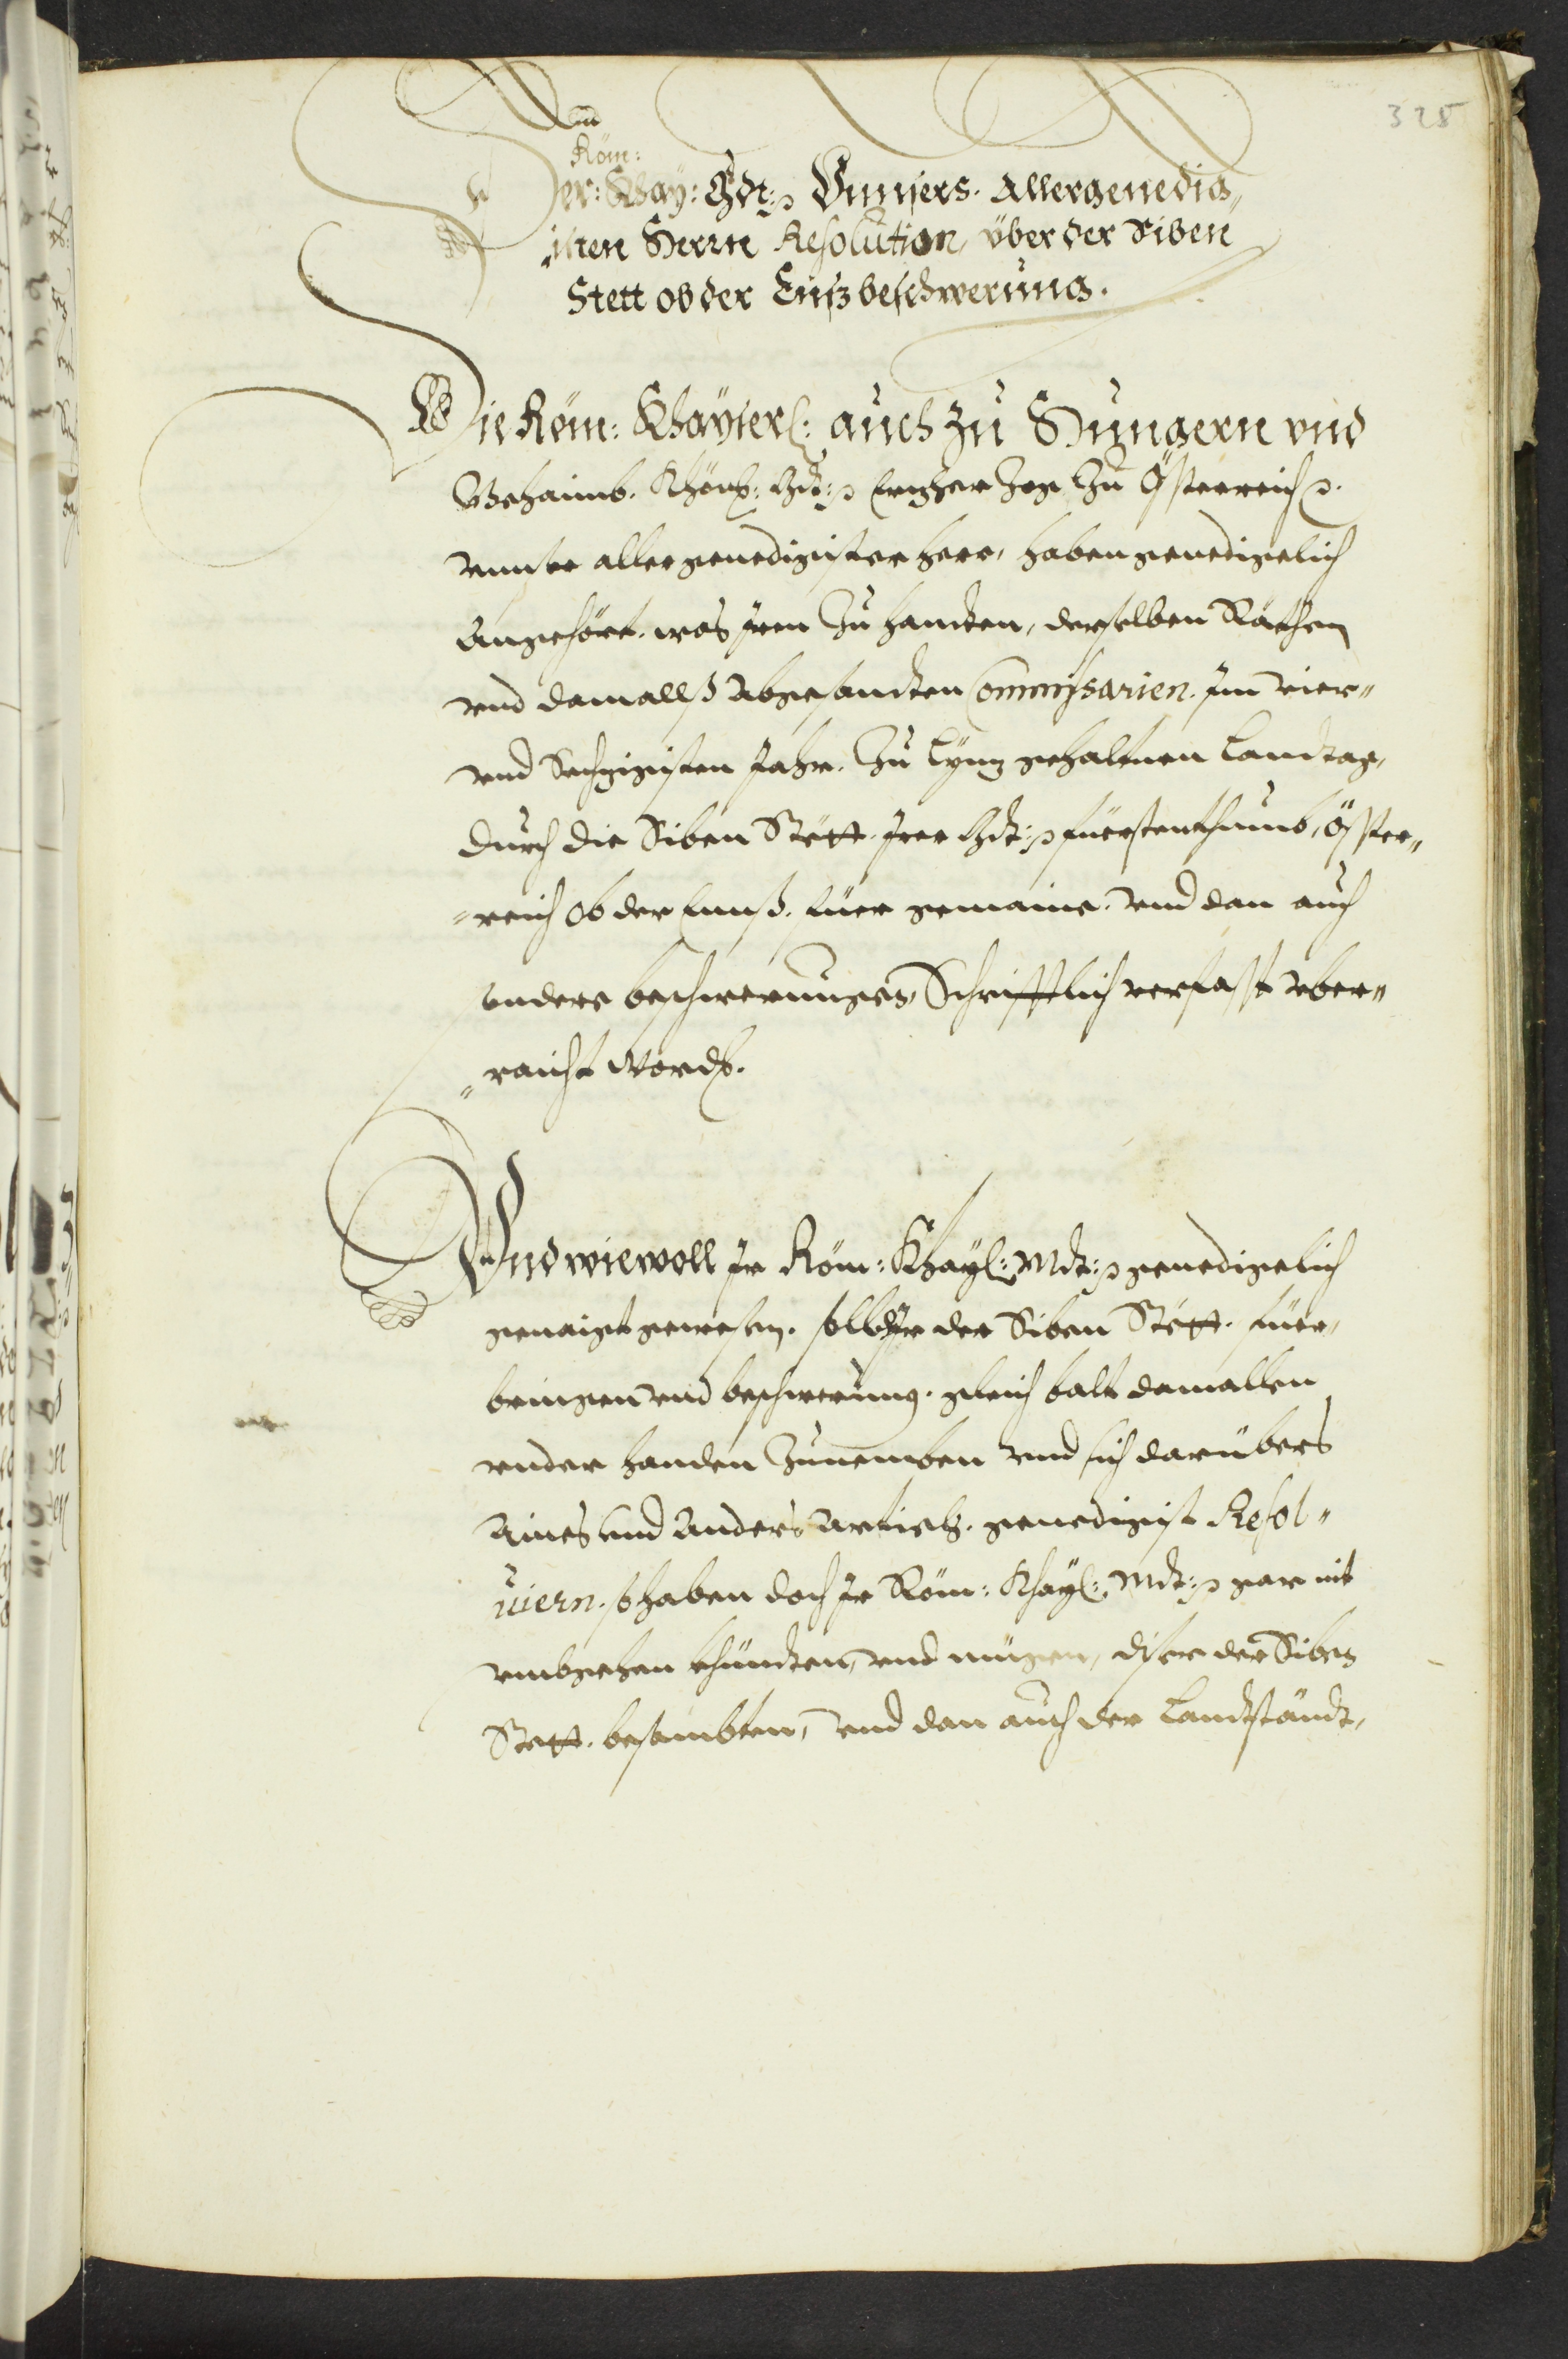 328
Röm:
Der: Khay: Mdt: Vnnsers Allergenedig„
„isten Herrn Resolution, über der Siben
Stett ob der Ennß beschwerung.
Die Röm: Khayserl: auch zu Hungern vnd
Behaimb. Khönl: Mdt: Ertzherzog zu Österreich
vnnser allergenedigister herr, haben genedigelich
Angehört, was Iren zu hanndten, derselben Räthen
vnd damallß Abgesandten Commissarien. Im vier„
vnd Sechzigisten Jahr. Zu Lynz gehaltnen Landtag,
durch die Siben Stett Irer Mdt: Fürstenthumb, Öster„
„reich Ob der Ennß. füer gemaine. vnd dan auch
andere beschwerungen, Schrifftlich verfasst vber„
„raicht word.
Vnd wiewoll Ir Röm: Khayl: Mdt: genedigelich
genaigt gewesen. solch Ir der Siben Stett. füer„
bringen vnd beschwerung. gleich balt damallen
vnder handen Zunemben vnd sich darübers
Aines vnd Anders Articls. genedigist Resol„
uiern. so haben doch Ir Röm: Khayl: Mdt: gar nit
vmbgehen khündten, vnd mügen, diser der Siben
Stett. besambten, vnd dan auch der Landtständt,